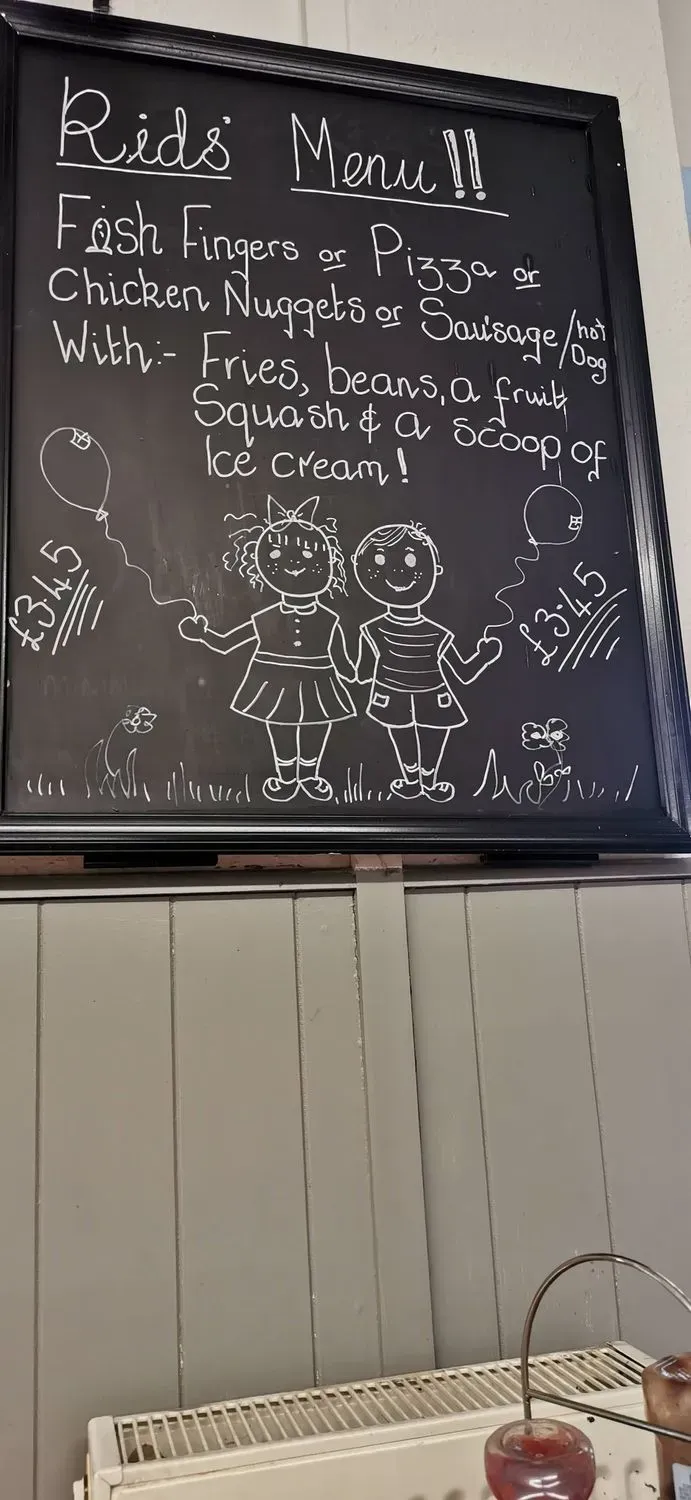 Kids' Menu!!
Fish Fingers or Pizza or
Chicken Nuggets or Sausage/hot Dog
With:- Fries, beans, a fruit
Squash & a scoop of
Ice cream!
£3.45
£3.45